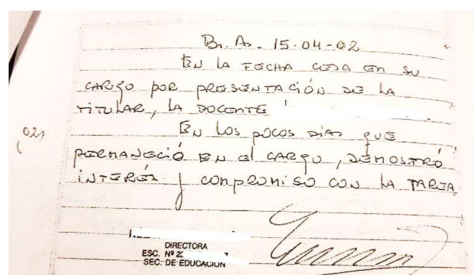 Bs. As. 15-04-02
En la fecha cesa en su
cargo por presentación de la
titular, la docente
En los pocos días que
permaneció en el cargo, demostró
interés y compromiso con la tarea.
021
DIRECTORA
ESC. Nº 2
SEC. DE EDUCACION